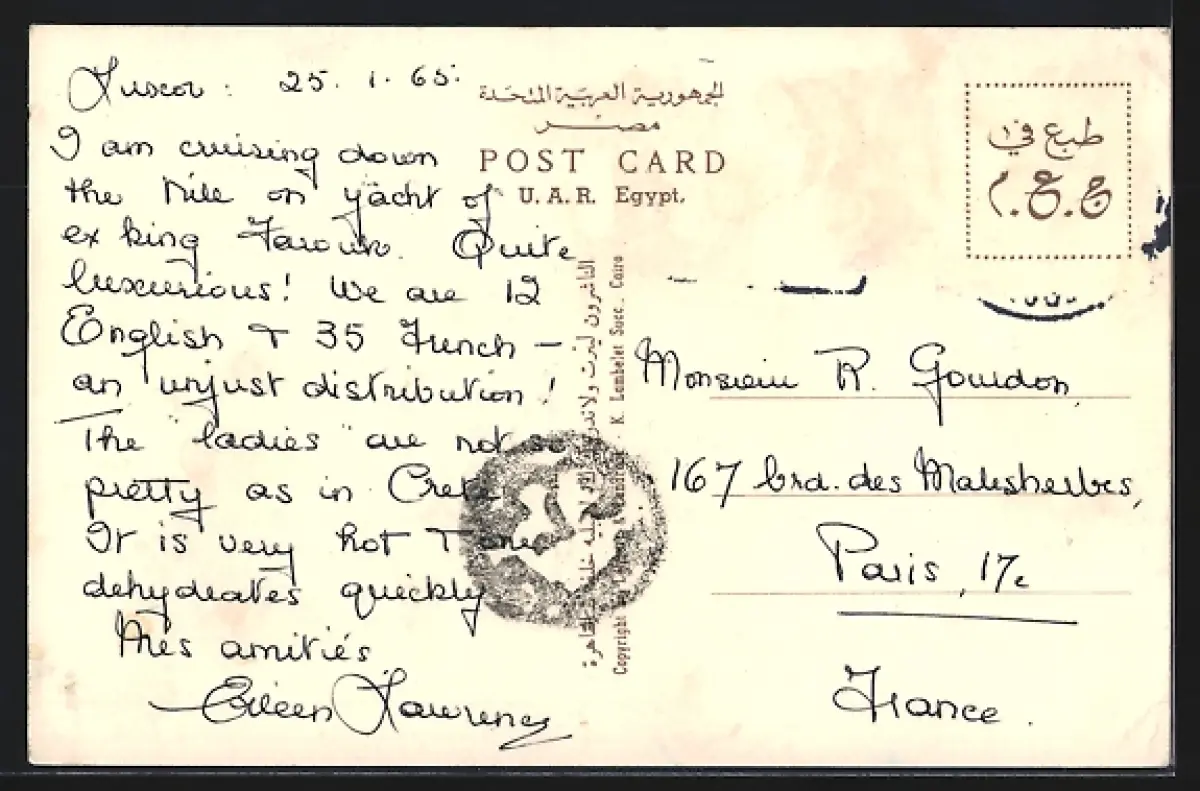 Luxor : 25. 1. 65.
I am cruising down
the Nile on yacht of
ex king Farouk. Quite
luxurious! We are 12
English + 35 French –
an unjust distribution!
The "ladies" are not so
pretty as in Crete.
It is very hot + one
dehydrates quickly
Mes amitiés
Eileen Lawrence
الجمهورية العربية المتحدة
مصر
POST CARD
U. A. R. Egypt.
طبع في
ج.ع.م
الناشرون لينرت ولاندروك
Copyright by Lehnert & Landrock - K. Lambelet Succ. Cairo
Monsieur R. Gourdon,
167 brd. des Malesherbes,
Paris, 17e
France.